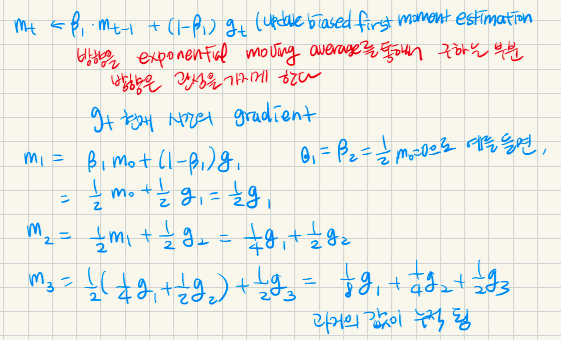 m_t ← β₁·m_{t-1} + (1-β₁) g_t (update biased first moment estimation
방향을 exponential moving average를 통해서 구하는 부분
방향은 관성을 가지게 한다
g_t 현재 시간의 gradient
m₁ = β₁ m₀ + (1-β₁) g₁ β₁ = β₂ = 1/2 m₀=0으로 예를 들면,
= 1/2 m₀ + 1/2 g₁ = 1/2 g₁
m₂ = 1/2 m₁ + 1/2 g₂ = 1/4 g₁ + 1/2 g₂
m₃ = 1/2 ( 1/4 g₁ + 1/2 g₂ ) + 1/2 g₃ = 1/8 g₁ + 1/4 g₂ + 1/2 g₃
과거의 값이 누적 됨